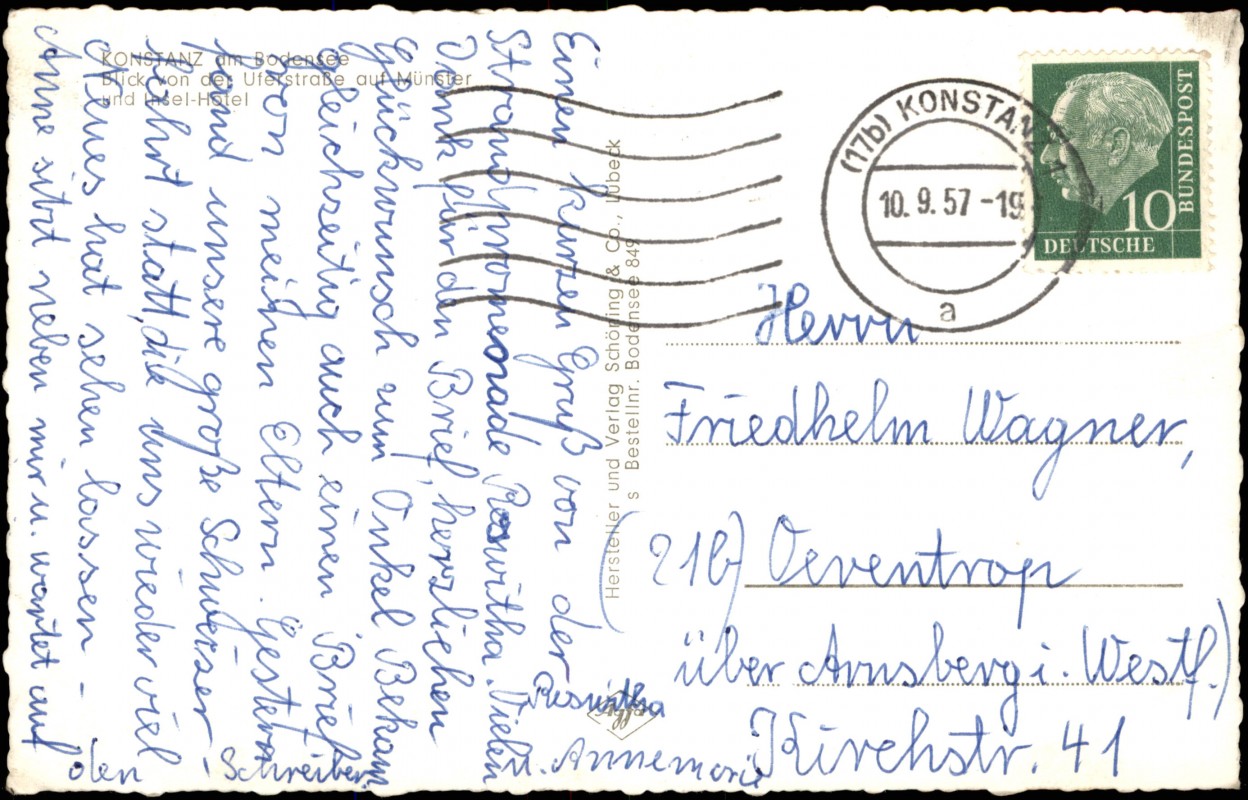 KONSTANZ am Bodensee
Blick von der Uferstraße auf Münster
und Insel-Hotel
Einen kurzen Gruß von der
Strandpromenade Roswitha. Vielen
Dank für den Brief, herzlichen
Glückwunsch zum Onkel. Bekam
gleichzeitig auch einen Brief
von meinen Eltern. Gestern
fand unsere große Schweizer-
fahrt statt, die uns wieder viel
Neues hat sehen lassen -
Anne sitzt neben mir u. wartet auf
den - Schreiber.
Roswitha
u. Annemarie
Hersteller und Verlag Schöning & Co., Lübeck
s Bestellnr. Bodensee 849
(17b) KONSTANZ
10. 9. 57 - 19
a
10
DEUTSCHE
BUNDESPOST
Herrn
Friedhelm Wagner,
(21b) Oeventrop
über Arnsberg i. Westf.)
Kirchstr. 41